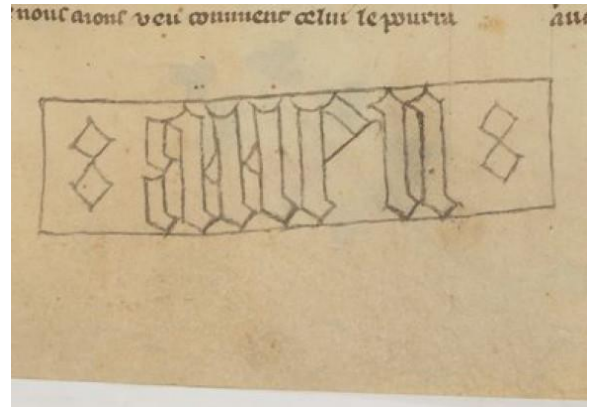 nous auons veu comment celui le pourra
amen